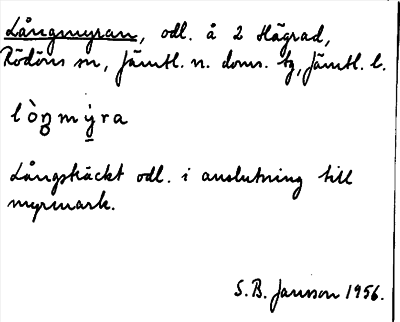 Långmyran, odl. å 2 Hägrad,
Rödöns sn, Jämtl. n. doms. tg, Jämtl. l.
lò̀n̥mýra
Långsträckt odl. i anslutning till
myrmark.
S.B. Jansson 1956.